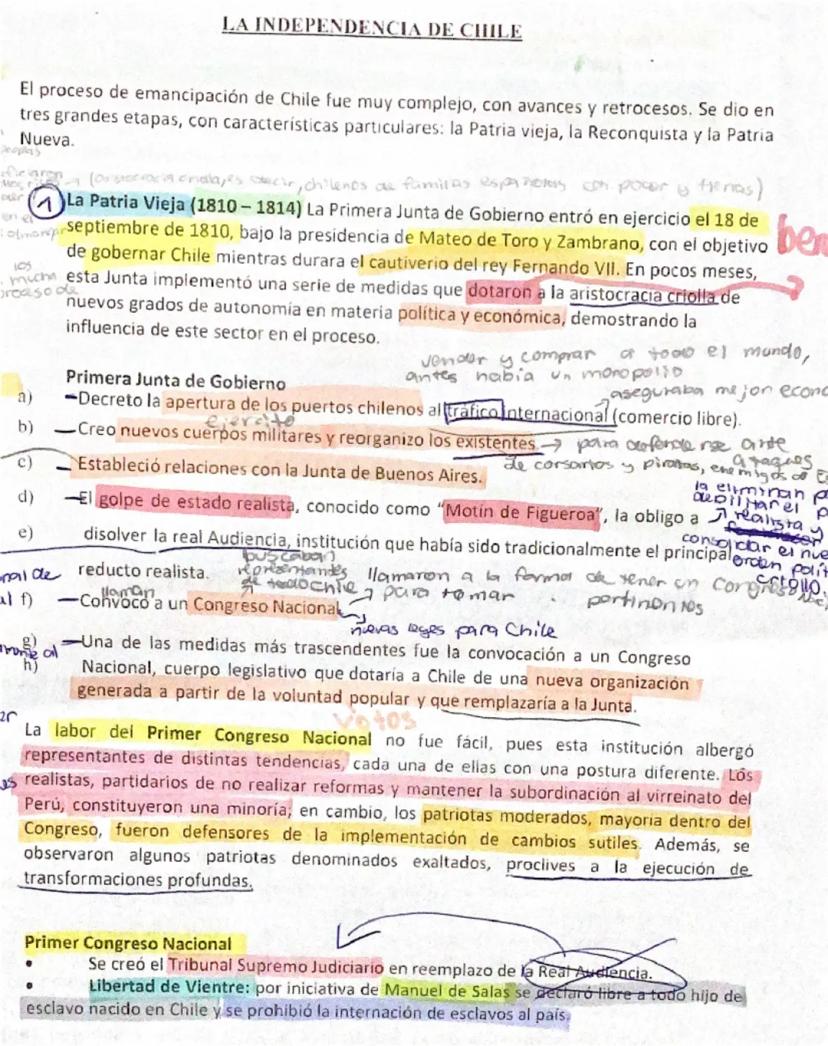 LA INDEPENDENCIA DE CHILE
El proceso de emancipación de Chile fue muy complejo, con avances y retrocesos. Se dio en
tres grandes etapas, con características particulares: la Patria vieja, la Reconquista y la Patria
Nueva.
(aristocracia criolla, es decir, chilenos de familias españolas con poder y tierras)
1 La Patria Vieja (1810 – 1814) La Primera Junta de Gobierno entró en ejercicio el 18 de
septiembre de 1810, bajo la presidencia de Mateo de Toro y Zambrano, con el objetivo
de gobernar Chile mientras durara el cautiverio del rey Fernando VII. En pocos meses,
los
mucha esta Junta implementó una serie de medidas que dotaron a la aristocracia criolla de
nuevos grados de autonomía en materia política y económica, demostrando la
influencia de este sector en el proceso.
vender y comprar a todo el mundo,
antes había un monopolio
Primera Junta de Gobierno
aseguraba mejor econo
a) Decreto la apertura de los puertos chilenos al tráfico internacional (comercio libre).
ejercito
b) Creo nuevos cuerpos militares y reorganizo los existentes → para defenderse ante
ataques
de corsarios y piratas, enemigos de E
c) Estableció relaciones con la Junta de Buenos Aires.
la eliminan p
debilitar el p
d) El golpe de estado realista, conocido como “Motín de Figueroa”, la obligo a
realista y
e) disolver la real Audiencia, institución que había sido tradicionalmente el principal
consolidar el nue
orden polít
criollo.
reducto realista.
buscaban
representantes
de todo chile
llamaron a la forma de tener un Congreso
para tomar
pertinentes
llaman
f) Convocó a un Congreso Nacional
nuevas leyes para Chile
g) Una de las medidas más trascendentes fue la convocación a un Congreso
h) Nacional, cuerpo legislativo que dotaría a Chile de una nueva organización
generada a partir de la voluntad popular y que remplazaría a la Junta.
votos
La labor del Primer Congreso Nacional no fue fácil, pues esta institución albergó
representantes de distintas tendencias, cada una de ellas con una postura diferente. Los
realistas, partidarios de no realizar reformas y mantener la subordinación al virreinato del
Perú, constituyeron una minoría; en cambio, los patriotas moderados, mayoría dentro del
Congreso, fueron defensores de la implementación de cambios sutiles. Además, se
observaron algunos patriotas denominados exaltados, proclives a la ejecución de
transformaciones profundas.
Primer Congreso Nacional
• Se creó el Tribunal Supremo Judiciario en reemplazo de la Real Audiencia.
• Libertad de Vientre: por iniciativa de Manuel de Salas se declaró libre a todo hijo de
esclavo nacido en Chile y se prohibió la internación de esclavos al país.